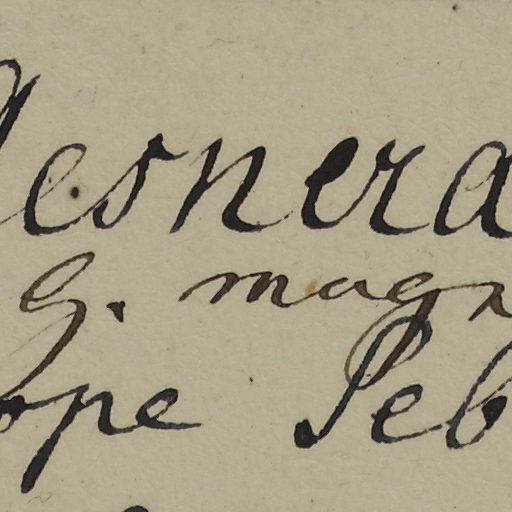 Gesnera
G. magn
ope Seb